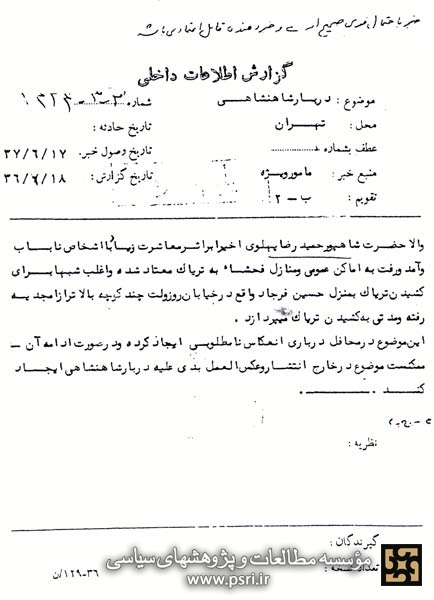 خبر باحتمال قوی صحیح است و خبر دهنده قابل اعتماد می باشد
گزارش اطلاعات داخلی
موضوع : دربار شاهنشاهی
شماره
محل : تهران
تاریخ حادثه :
عطف بشماره
تاریخ وصول خبر. ۳۷/۶/۱۷
منبع خبر : مامور ویژه
تاریخ گزارش : ۳۶/۶/۱۸
تقویم : ب - ۲
والا حضرت شاهپور حمید رضا پهلوی اخیرا بر اثر معاشرت زیاد با اشخاص ناباب
و آمد و رفت به اماکن عمومی و منازل فحشاء به تریاک معتاد شده و اغلب شبها برای
کشیدن تریاک بمنزل حسین فرجاد واقع در خیابان روزولت چند کوچه بالاتر از امجدیه
رفته و مدتی به کشیدن تریاک میپردازد .
این موضوع در محافل درباری انعکاس نامطلوبی ایجاد کرده و در صورت ادامه آن -
ممکنست موضوع در خارج انتشار و عکس العمل بدی علیه دربار شاهنشاهی ایجاد
کند .
نظریه :
گیرندگان :
تعداد نسخه :
۱۲۹-۳۶/ن
مؤسسه مطالعات و پژوهشهای سیاسی
www.psri.ir